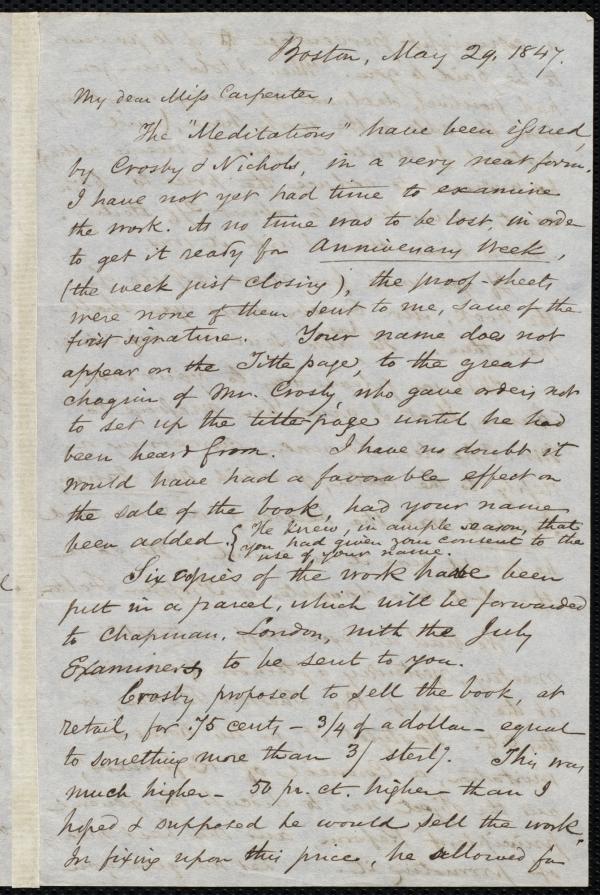 Boston, May 29, 1847.
My dear Miss Carpenter,
The "Meditations" have been issued,
by Crosby & Nichols, in a very neat form.
I have not yet had time to examine
the work. As no time was to be lost, in order
to get it ready for Anniversary Week,
(the week just closing), the proof-sheets
were none of them sent to me, save of the
first signature. Your name does not
appear on the Title page, to the great
chagrin of Mr. Crosby, who gave orders not
to set up the title-page until he had
been heard from. I have no doubt it
would have had a favorable effect on
the sale of the book, had your name
been added. {He knew, in ample season, that
you had given your consent to the
use of your name.
Six copies of the work have been
put in a parcel, which will be forwarded
to Chapman, London, with the July
Examiners, to be sent to you.
Crosby proposed to sell the book, at
retail, for .75 cents - 3/4 of a dollar - equal
to something more than 3/ sterlg. This was
much higher - 50 pr. ct. higher - than I
hoped & supposed he would sell the work.
In fixing upon this price, he allowed for